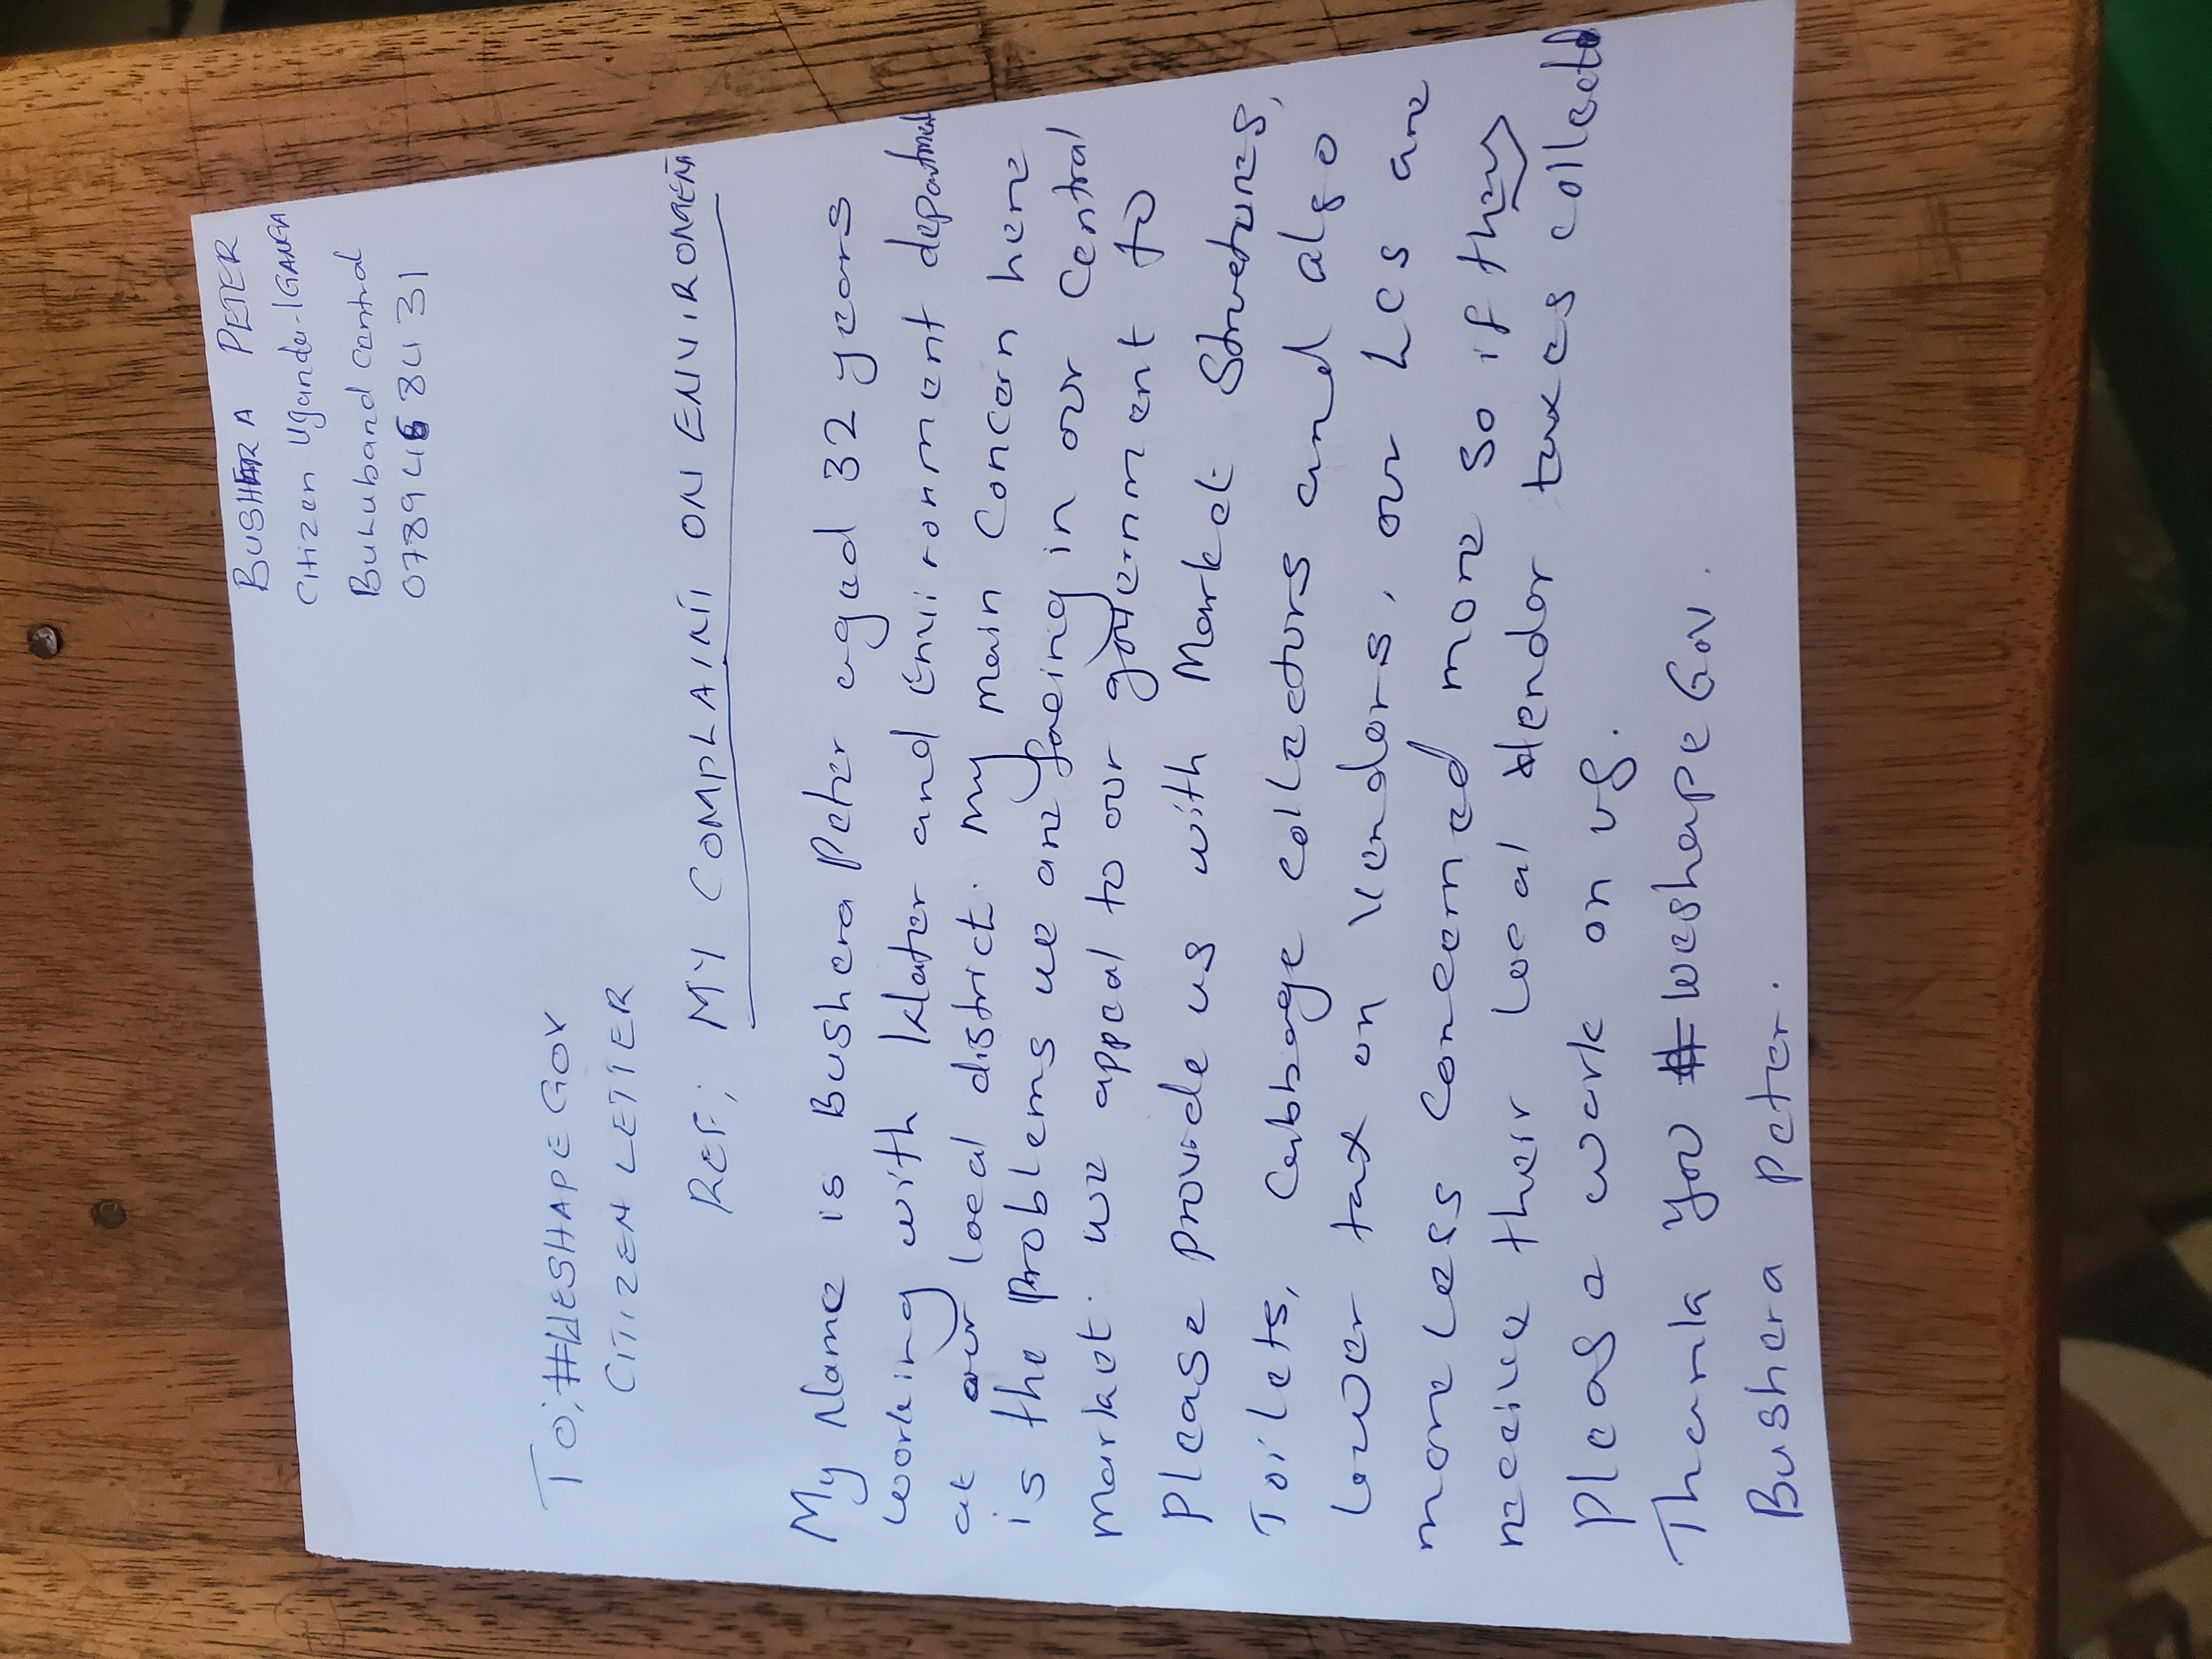 BUSHERA PETER
Citizen Uganda-IGANGA
Bukuband Central
0789468431
To; #WESHAPEGOV
CITIZEN LETTER
REF; MY COMPLAINT ON ENVIRONMENT
My Name is Bushera Peter aged 32 years
working with Water and Environment department
at our local district. My main Concern here
is the Problems we are faeing in our Central
market. we appeal to our government to
Please provide us with Market Structures,
Toilets, Cabbage collectors and also
lower tax on Vendors, our LCs are
more Less Concerned more so if they
receive their local Vendor taxes collected
Pleas a work on us.
Thank you #WeshapeGov.
Bushera Peter.